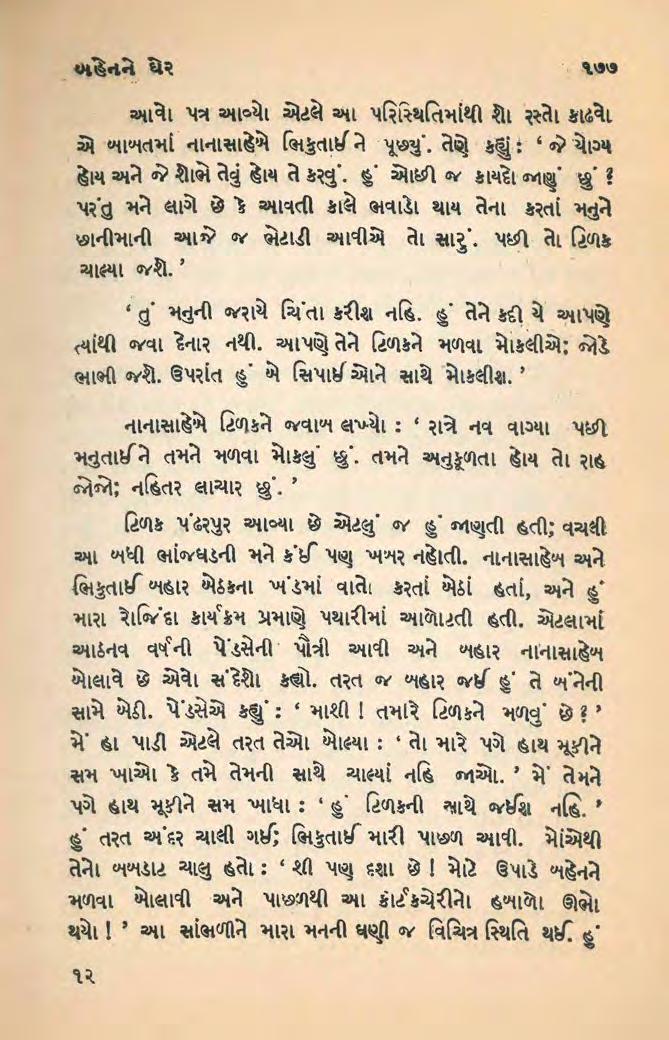 બહેનને ઘેર ૧૭૭
આવો પત્ર આવ્યો એટલે આ પરિસ્થિતિમાંથી શો રસ્તો કાઢવો
એ બાબતમાં નાનાસાહેબે ભિકુતાઈ ને પૂછ્યું. તેણે કહ્યું : ‘ જે યોગ્ય
હોય અને જે શોભે તેવું હોય તે કરવું. હું ઓછી જ કાયદો જાણું છું ?
પરંતુ મને લાગે છે કે આવતી કાલે ભવાડો થાય તેના કરતાં મનુને
છાનીમાની આજે જ ભેટાડી આવીએ તો સારું. પછી તો ટિળક
ચાલ્યા જશે. ’
‘ તું મનુની જરાયે ચિંતા કરીશ નહિ. હું તેને કદી યે આપણે
ત્યાંથી જવા દેનાર નથી. આપણે તેને ટિળકને મળવા મોકલીએ; જોડે
ભાભી જશે. ઉપરાંત હું બે સિપાઈઓને સાથે મોકલીશ. ’
નાનાસાહેબે ટિળકને જવાબ લખ્યો : ‘ રાત્રે નવ વાગ્યા પછી
મનુતાઈને તમને મળવા મોકલું છું. તમને અનુકૂળતા હોય તો રાહ
જોજો; નહિતર લાચાર છું. ’
ટિળક પંઢરપુર આવ્યા છે એટલું જ હું જાણતી હતી; વચલી
આ બધી ભાંજઘડની મને કંઈ પણ ખબર નહોતી. નાનાસાહેબ અને
ભિકુતાઈ બહાર બેઠકના ખંડમાં વાતો કરતાં બેઠાં હતાં, અને હું
મારા રોજિંદા કાર્યક્રમ પ્રમાણે પથારીમાં આળોટતી હતી. એટલામાં
આઠનવ વર્ષની પેંડસેની પૌત્રી આવી અને બહાર નાનાસાહેબ
બોલાવે છે એવો સંદેશો કહ્યો. તરત જ બહાર જઈ હું તે બંનેની
સામે બેઠી. પેંડસેએ કહ્યું : ‘ માશી ! તમારે ટિળકને મળવું છે ? ’
મેં હા પાડી એટલે તરત તેઓ બોલ્યા : ‘ તો મારે પગે હાથ મૂકીને
સમ ખાઓ કે તમે તેમની સાથે ચાલ્યાં નહિ જાઓ. ’ મેં તેમને
પગે હાથ મૂકીને સમ ખાધા : ‘ હું ટિળકની સાથે જઈશ નહિ. ’
હું તરત અંદર ચાલી ગઈ; ભિકુતાઈ મારી પાછળ આવી. મોંએથી
તેનો બબડાટ ચાલુ હતો : ‘ શી પણ દશા છે ! મોટે ઉપાડે બહેનને
મળવા બોલાવી અને પાછળથી આ કોર્ટકચેરીનો હબાળો ઊભો
થયો ! ’ આ સાંભળીને મારા મનની ઘણી જ વિચિત્ર સ્થિતિ થઈ. હું
૧૨